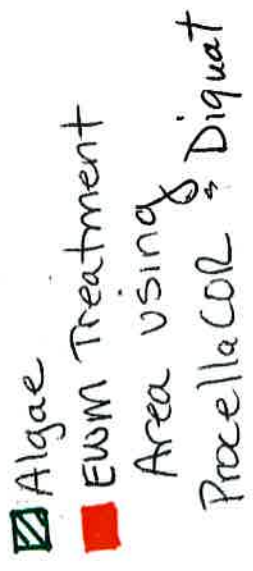 Algae
EWM Treatment
Area using
ProcellaCOR & Diquat